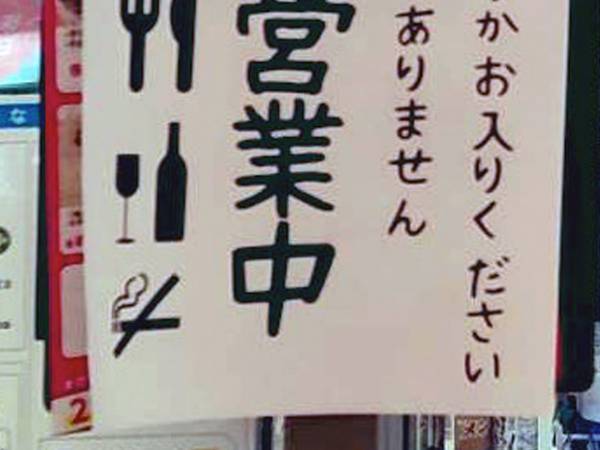 かお入りください
ありません
営業中
な
2